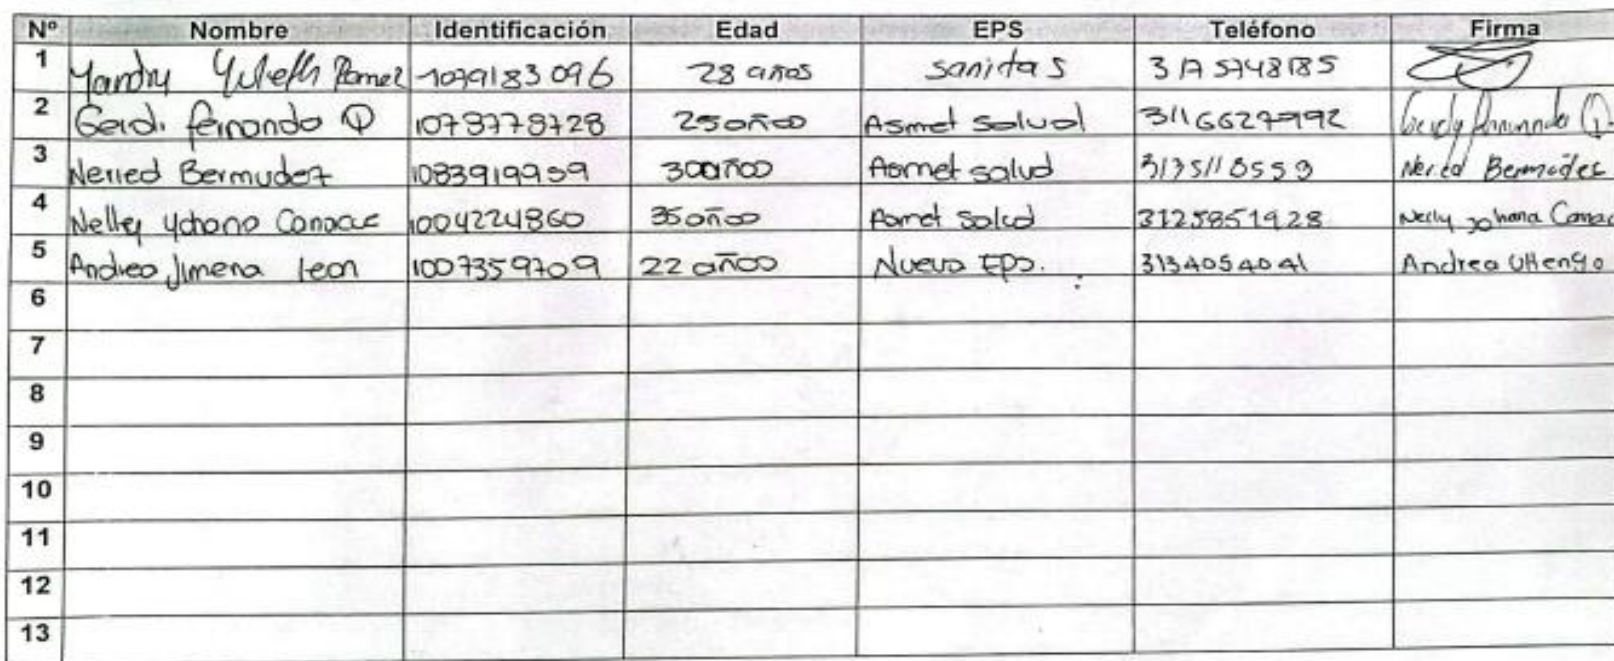 Nº Nombre Identificación Edad EPS Teléfono Firma
1 Yandry Yulieth 1079183096 28 años sanitas 3175748185
2 Gerdi fernando Q 1078778728 25 años Asmet Salud 3116627992 Gerdy fernando Q
3 Neried Bermudez 1083919959 30 años Asmet salud 3135118559 Neried Bermudez
4 Nelley Yohana 1004224860 35 años Asmet Salud 3125851928 Nelly Johana
5 Andrea Jimena leon 1007359709 22 años Nueva EPS. 3134054041 Andrea
6
7
8
9
10
11
12
13